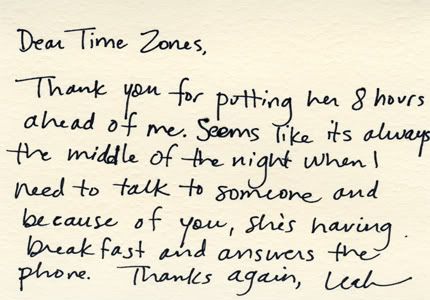 Dear Time Zones,
Thank you for putting her 8 hours
ahead of me. Seems like its always
the middle of the night when I
need to talk to someone and
because of you, she's having
breakfast and answers the
phone. Thanks again, Leah